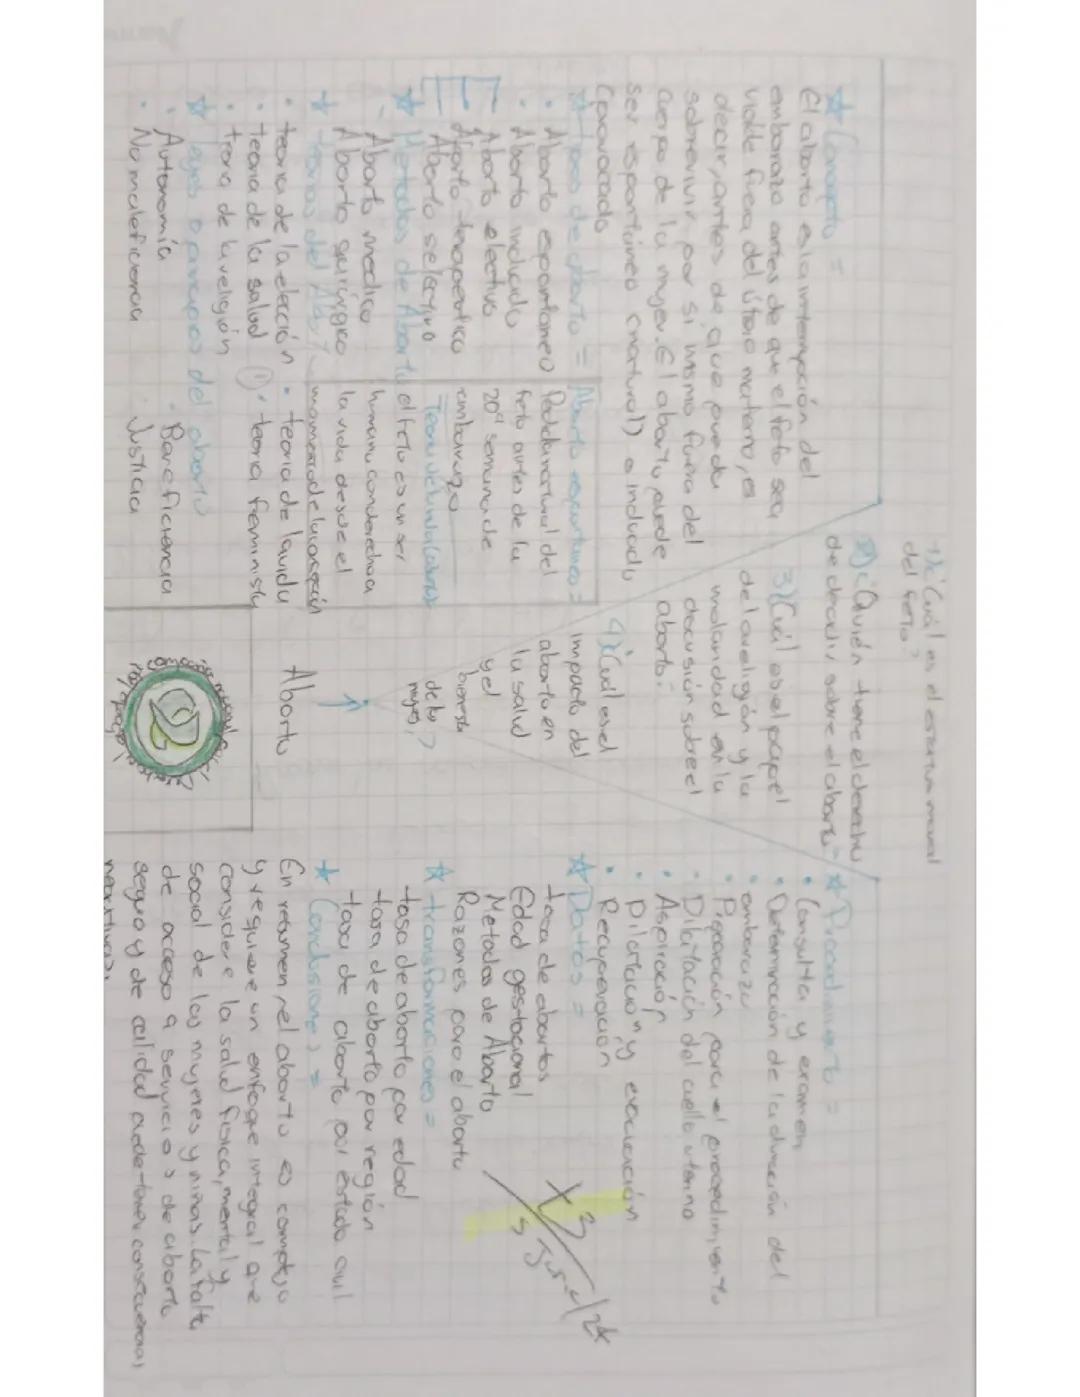 1) ¿Cuál es el estatus moral
del feto?
2) ¿Quién tiene el derecho
de decidir sobre el aborto
3) ¿Cuál es el papel
de la religión y la
moralidad en la
discusión sobre el
aborto?
4) ¿Cuál es el
impacto del
aborto en
la salud
y el
bienestar
de la
mujer?
Aborto
☆ Concepto =
El aborto es la interrupción del
embarazo antes de que el feto sea
viable fuera del útero materno, es
decir, antes de que pueda
sobrevivir por si mismo fuera del
cuerpo de la mujer. El aborto puede
ser espontáneo (natural) o inducido
(provocado
☆ Tipos de aborto =
• Aborto espontáneo
• Aborto inducido
Aborto electivo
Aborto terapeutico
Aborto selectivo
☆ Metodos de Aborto
Aborto medico
Aborto quirúrgico
☆ teorias del
• teoria de la elección • teoria de la vida
• teoria de la salud • teoria feminista
• teoria de la religión
☆ leyes o principios del aborto
• Autonomía • Beneficiencia
• No maleficencia • Justicia
Aborto espontaneo =
Perdida natural del
feto antes de la
20ª semana de
embarazo
el feto es un ser
humano con derecho a
la vida desde el
momento de la concepción
☆ Procedimiento =
• Consulta y examen
• Determinación de la duración del
embarazo
• Preparación para el procedimiento
• Dilatación del cuello uterino
• Aspiración
• Dilatación y evacuación
• Recuperación
☆ Datos =
tasa de abortos
Edad gestacional
Metodos de Aborto
Razones para el aborto
☆ transformaciones =
tasa de aborto por edad
tasa de aborto por región
tasa de aborto por estado civil
☆ Conclusiones =
En resumen, el aborto es complejo
y requiere un enfoque integral que
considere la salud fisica, mental y
social de las mujeres y niñas. La falta
de acceso a servicios de aborto
seguro y de calidad puede tener consecuencias